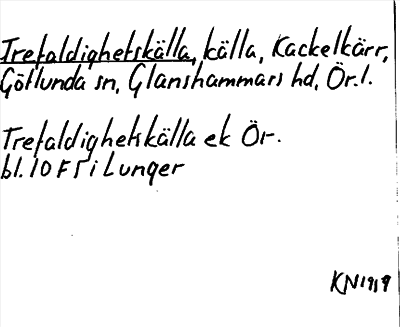 Trefaldighetskälla, källa, Kackelkärr,
Götlunda sn, Glanshammars hd, Ör. l.
Trefaldighetskälla ek Ör.
bl. 10 F5 i Lunger
KN 1919